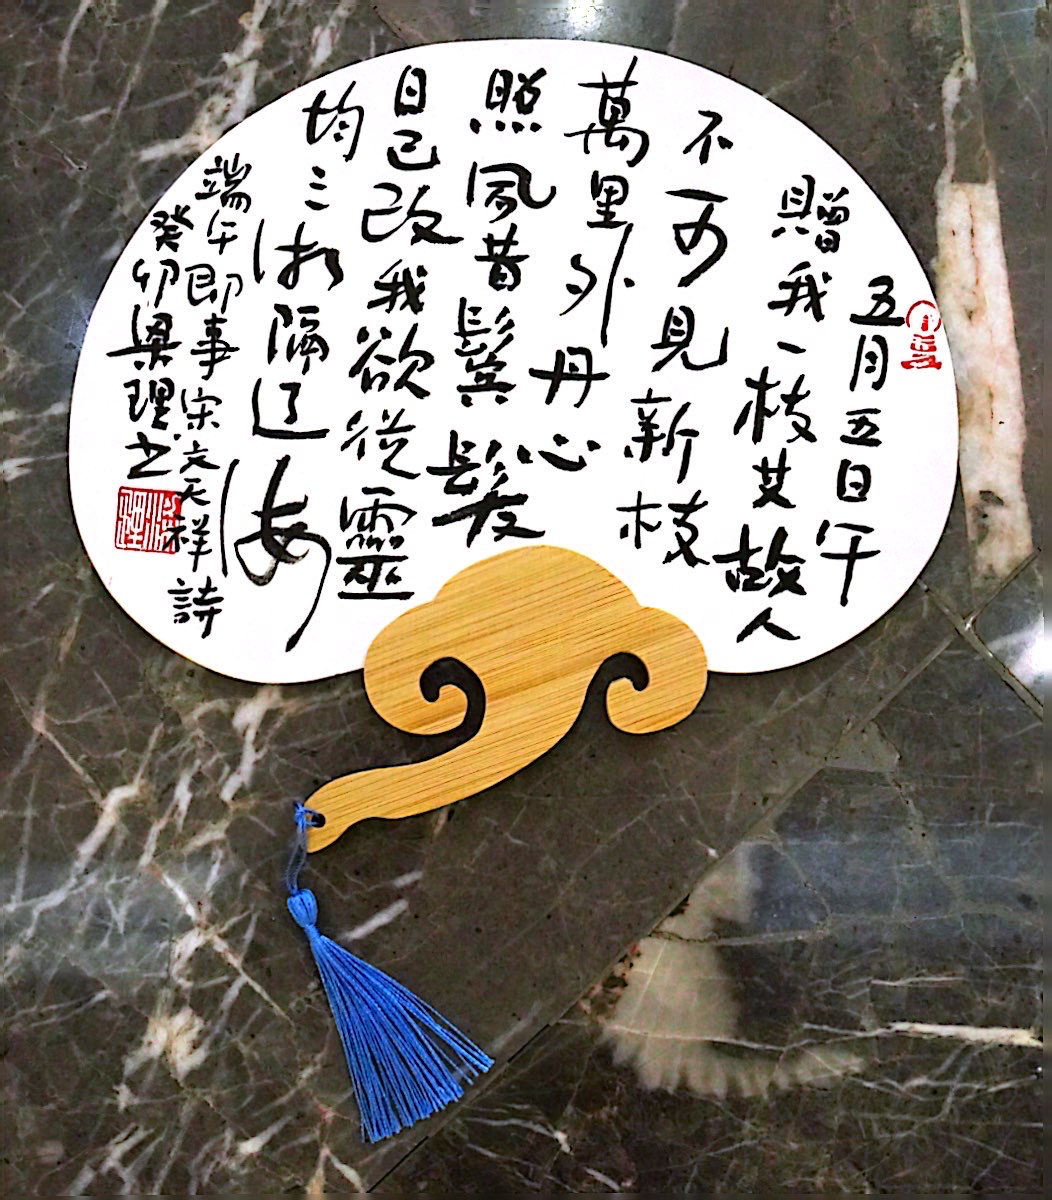 五月五日午
贈我一枝艾故人
不可見新枝
萬里外丹心
照夙昔鬢髮
日已改我欲從靈
均三湘隔辽海
端午即事宋文天祥詩
癸卯梁理书